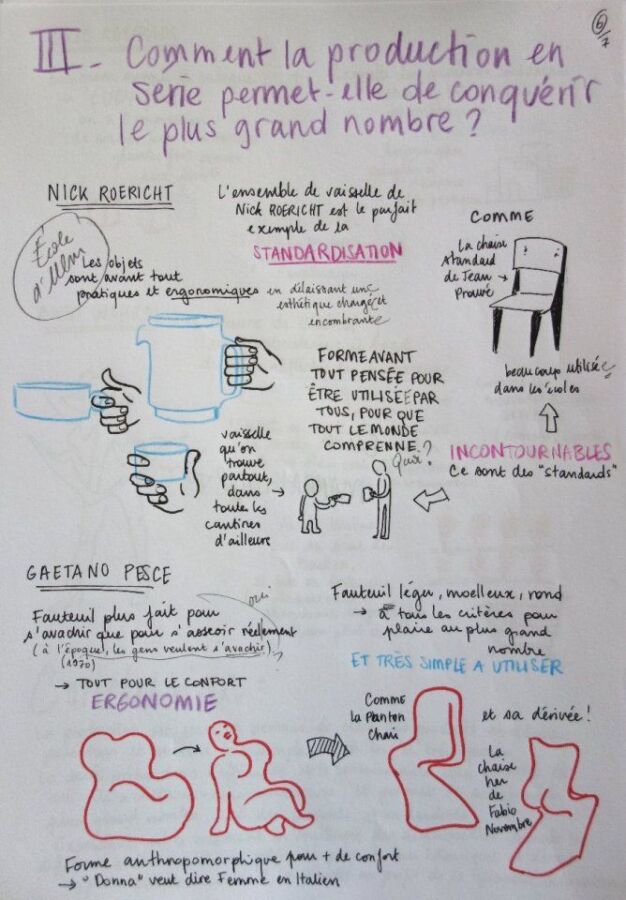 6/7
III - Comment la production en
série permet-elle de conquérir
le plus grand nombre ?
NICK ROERICHT
L'ensemble de vaisselle de
Nick ROERICHT est le parfait
exemple de la
STANDARDISATION
École
d'Ulm
Les objets
sont avant tout
pratiques et ergonomiques en délaissant une
esthétique chargée et
encombrante
COMME
La chaise
standard
de Jean
Prouvé
beaucoup utilisée
dans les écoles
INCONTOURNABLES
Ce sont des "standards"
FORME AVANT
TOUT PENSÉE POUR
ÊTRE UTILISÉE PAR
TOUS, POUR QUE
TOUT LE MONDE
COMPRENNE.
Quoi ?
vaisselle
qu'on
trouve
partout,
dans →
toutes les
cantines
d'ailleurs
GAETANO PESCE
oui
Fauteuil plus fait pour
s'avachir que pour s'asseoir réellement
(à l'époque, les gens veulent s'avachir)
(1970)
→ TOUT POUR LE CONFORT
ERGONOMIE
Fauteuil léger, moelleux, rond
→ a tous les critères pour
plaire au plus grand
nombre
ET TRÈS SIMPLE A UTILISER
Comme
la Panton
Chair
et sa dérivée !
La
chaise
her
de
Fabio
Novembre
Forme anthropomorphique pour + de confort
→ "Donna" veut dire Femme en Italien